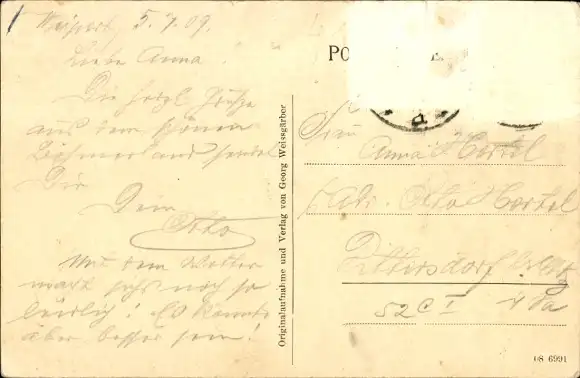 Weipert, 5.7.09.
Liebe Anna!
Die herzl. Grüße
aus dem schönen
Böhmerland sendet
Dir
Dein
Otto
Mit dem Wetter
macht sichs noch so
! Es könnte
aber besser sein!
Originalaufnahme und Verlag von Georg Weissgärber
PO
Frau
Anna Hertel
Adr. Otto Hertel
Dittersdorf
52c I
08 6991